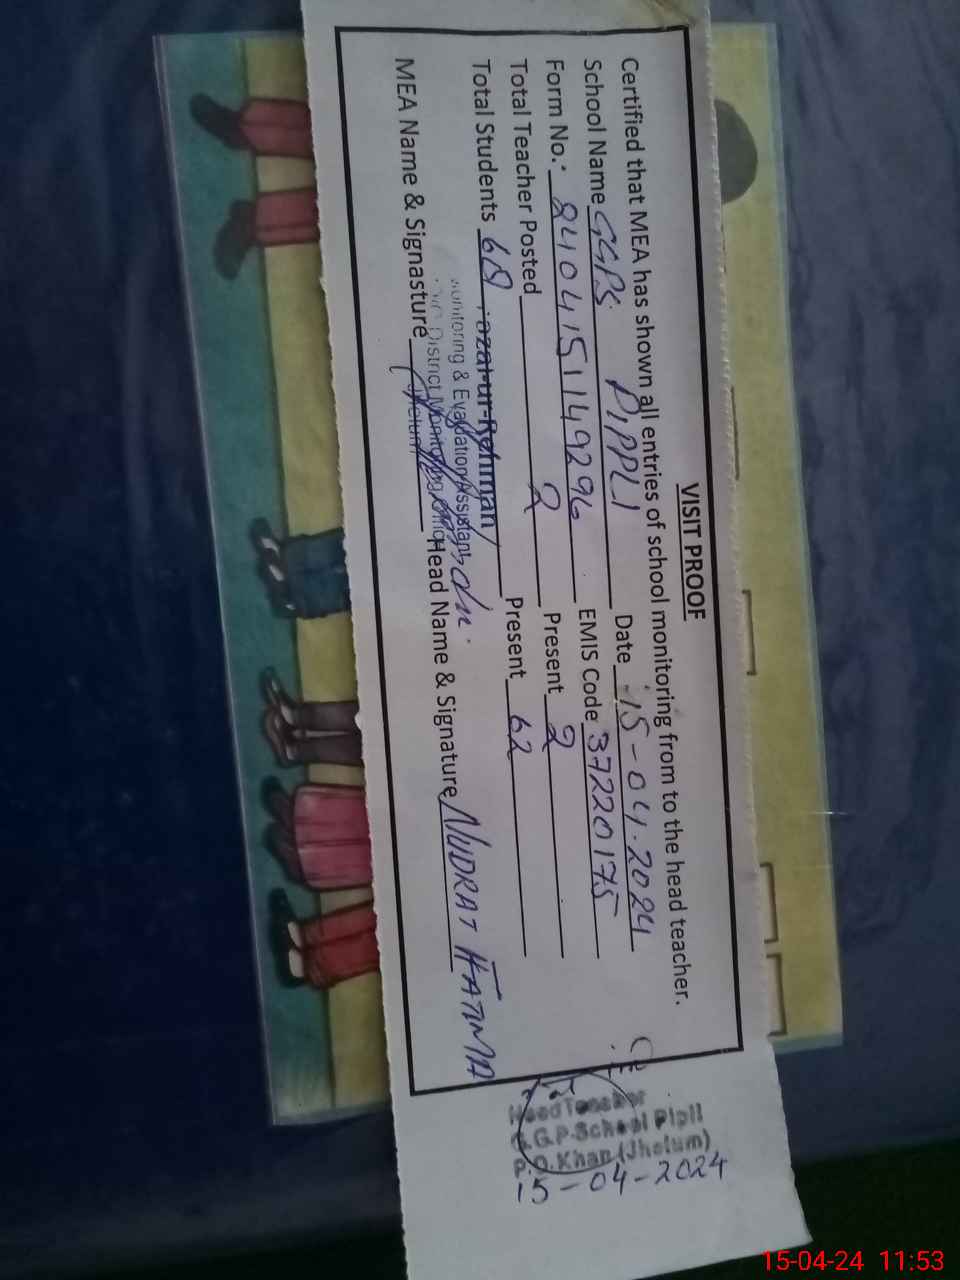 VISIT PROOF
Certified that MEA has shown all entries of school monitoring from to the head teacher.
School Name GGPS PIPPLI Date 15-04-2024
Form No.: 240415149296 EMIS Code 37220175
Total Teacher Posted 2 Present 2
Total Students 69 Present 62
-ur-Rehman
Monitoring & Evaluation Assistant
District Monitoring Office
Jhelum
MEA Name & Signasture Head Name & Signature NUDRAT FATIMA
Head Teacher
G.G.P-School Pipli
P.D.Khan (Jhelum)
15-04-2024
15-04-24 11:53